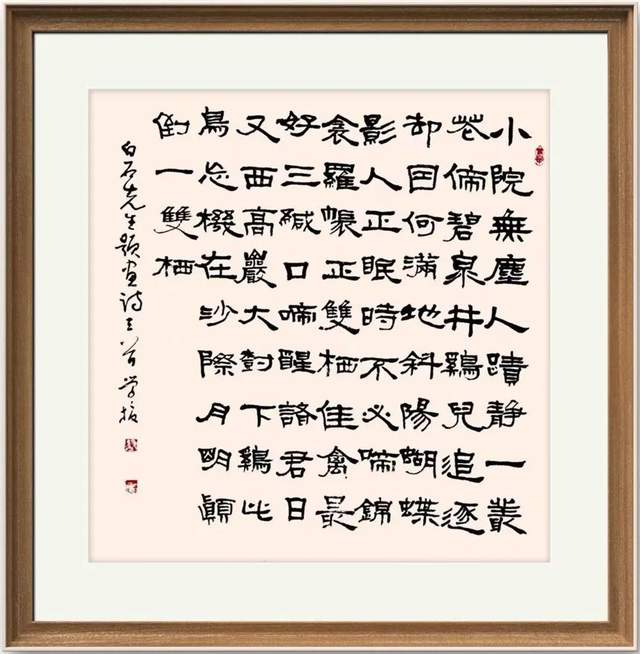 小院無塵人蹟靜一叢
花傍碧泉井鷄兒追逐
却因何滿地斜陽蝴蝶
影人正眠時不必啼錦
衾羅帳正雙栖佳禽最
好三緘口啼醒諸君日
又西高巖大對下鷄比
鳥忘機在沙際月明顛
倒一雙栖
白石先生題畫詩三首學振